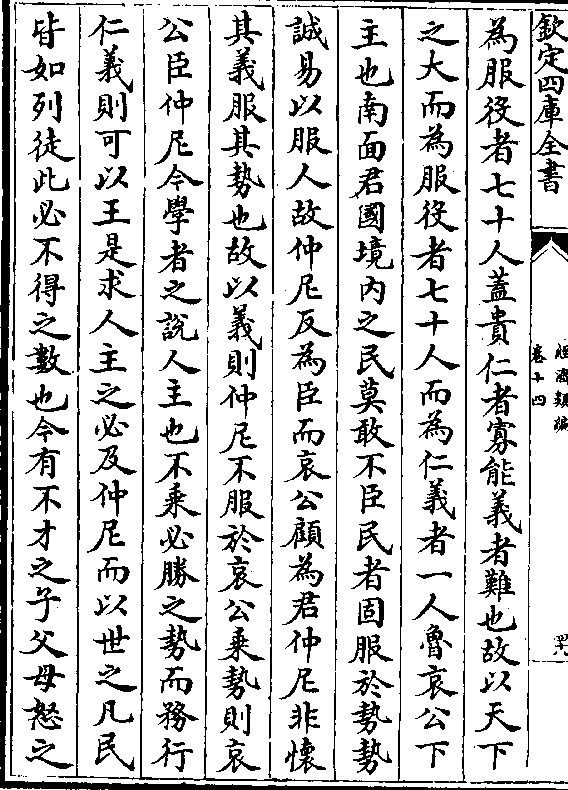 欽定四庫全書
經濟類編
卷十四
為服役者七十人蓋貴仁者寡能義者難也故以天下
之大而為服役者七十人而為仁義者一人魯哀公下
主也南面君國境內之民莫敢不臣民者固服於勢勢
誠易以服人故仲尼反為臣而哀公顧為君仲尼非懷
其義服其勢也故以義則仲尼不服於哀公乘勢則哀
公臣仲尼今學者之說人主也不乘必勝之勢而務行
仁義則可以王是求人主之必及仲尼而以世之凡民
皆如列徒此必不得之數也今有不才之子父母怒之